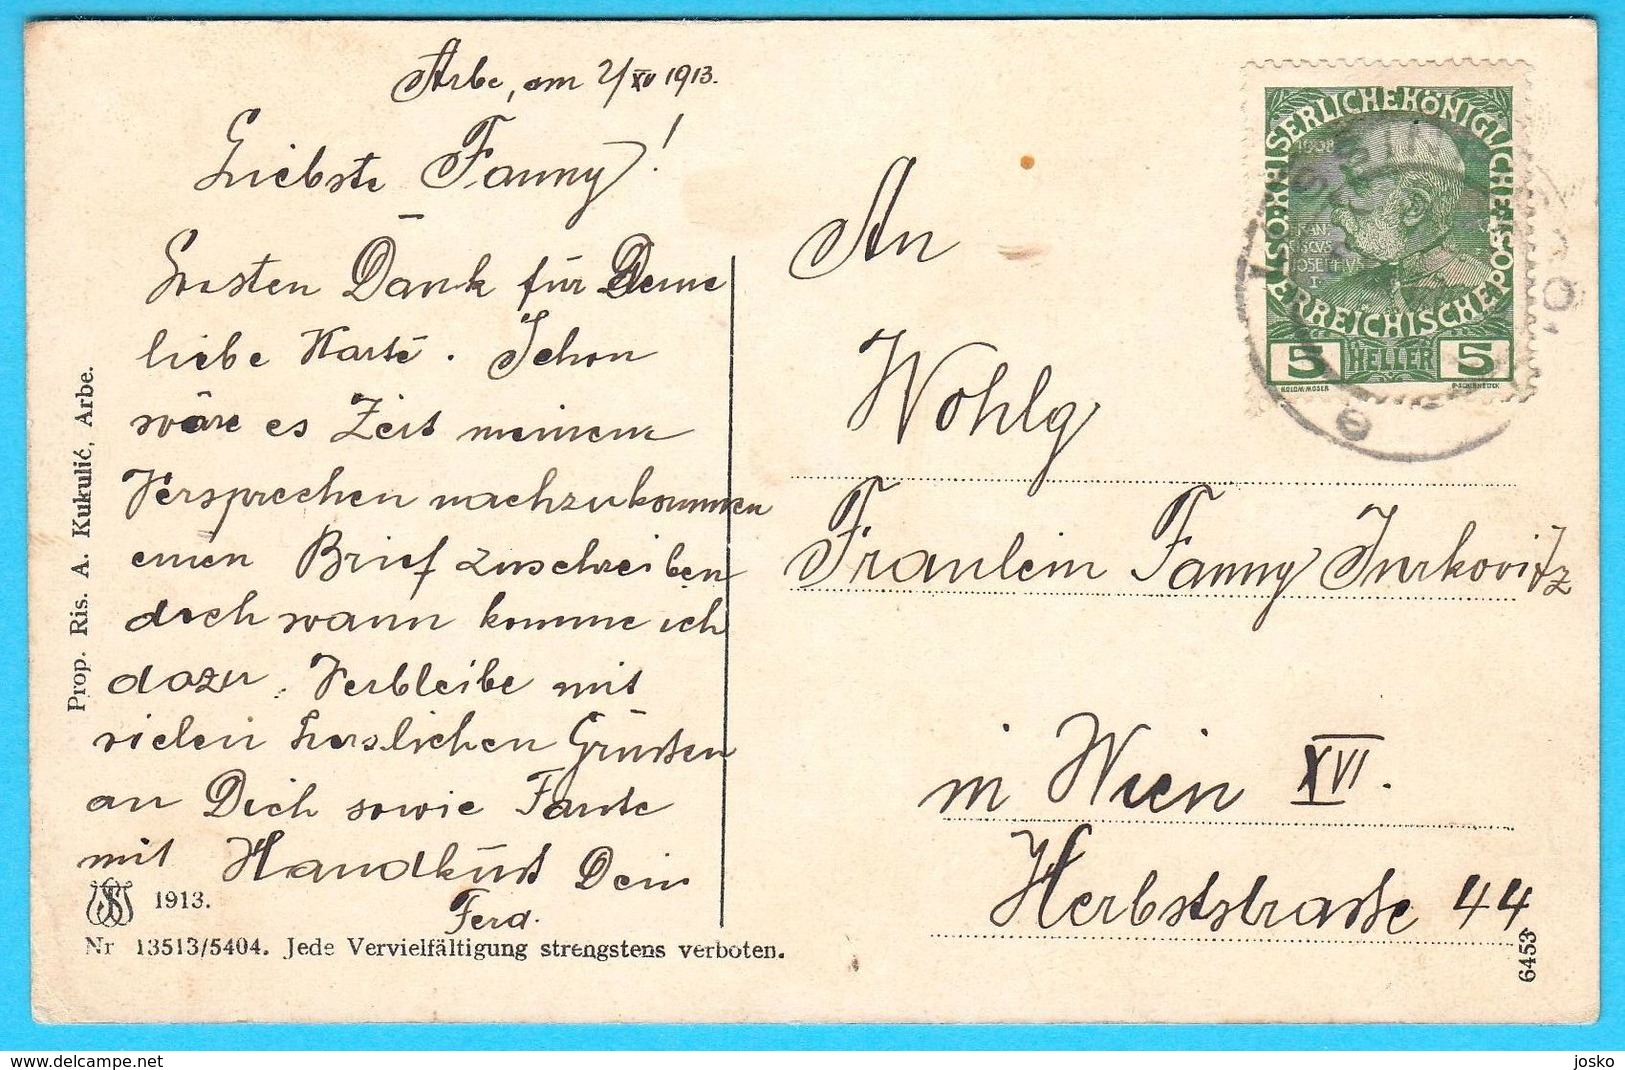 Arbe, am 2/XII 1913.
Liebste Fanny!
Besten Dank für Deine
liebe Karte. Schon
wäre es Zeit meinem
Versprechen nachzukommen
einen Brief zuschreiben
doch wann komme ich
dazu. Verbleibe mit
vielen herzlichen Grüßen
an Dich sowie Tante
mit Handkuß Dein
Ferd.
Prop. Ris. A. Kukulić, Arbe.
1913.
Nr 13513/5404. Jede Vervielfältigung strengstens verboten.
An
Wohlg
Fräulein Fanny Jurkovitz
in Wien XVI.
Herbststraße 44
6453
KAISERLICHEKÖNIGLICHE
ÖSTERREICHISCHEPOST
1908
5 HELLER 5
KOLOM. MOSER
josko
delcampe.net